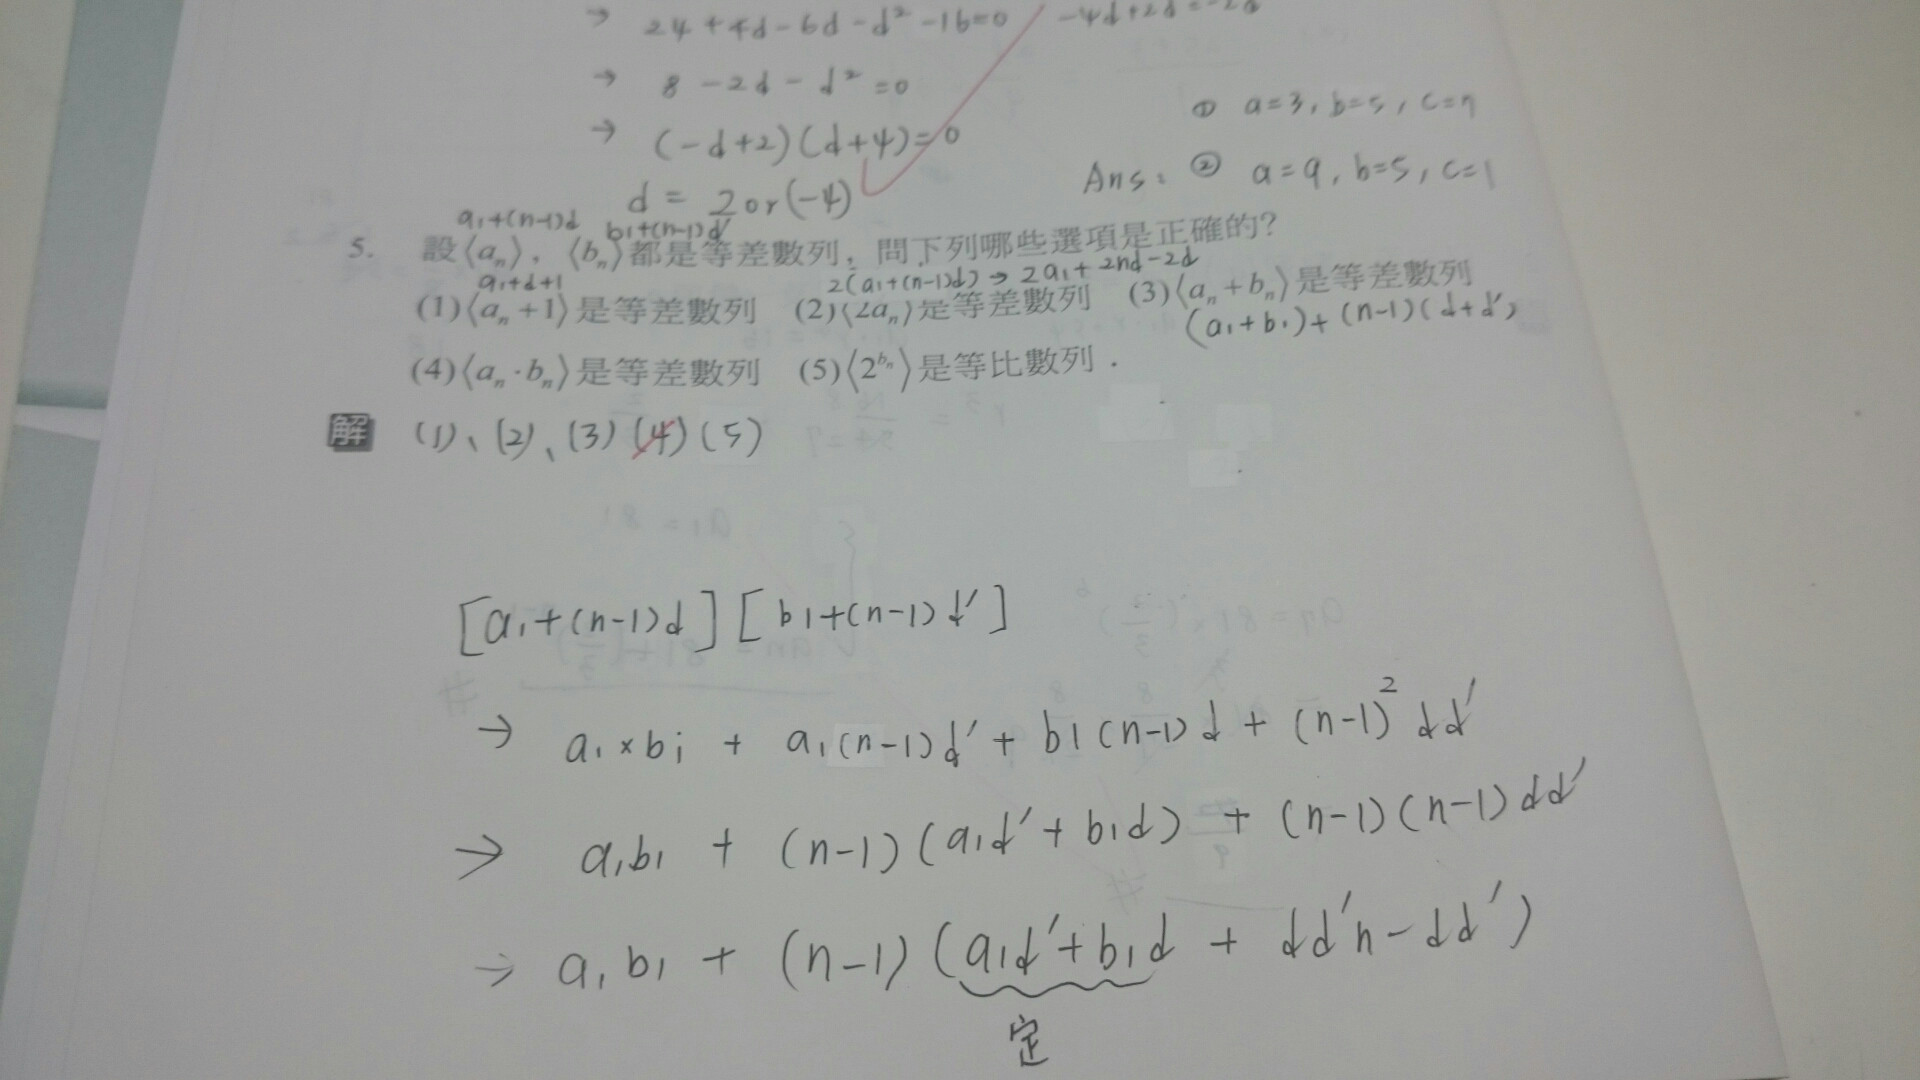 → 24+4d-6d-d²-16=0 -4d+2d=-2d
→ 8-2d-d²=0
→ (-d+2)(d+4)=0
① a=3, b=5, c=7
d = 2 or (-4)
Ans: ② a=9, b=5, c=1
a₁+(n-1)d b₁+(n-1)d'
5. 設⟨aₙ⟩，⟨bₙ⟩都是等差數列，問下列哪些選項是正確的?
a₁+d+1 2(a₁+(n-1)d) → 2a₁+2nd-2d
(1)⟨aₙ+1⟩是等差數列 (2)⟨2aₙ⟩是等差數列 (3)⟨aₙ+bₙ⟩是等差數列
(a₁+b₁)+(n-1)(d+d')
(4)⟨aₙ·bₙ⟩是等差數列 (5)⟨2^bₙ⟩是等比數列．
解 (1)、(2)、(3) (4) (5)
[a₁+(n-1)d][b₁+(n-1)d']
→ a₁×b₁ + a₁(n-1)d' + b₁(n-1)d + (n-1)²dd'
→ a₁b₁ + (n-1)(a₁d'+b₁d) + (n-1)(n-1)dd'
→ a₁b₁ + (n-1)(a₁d'+b₁d + dd'n-dd')
定